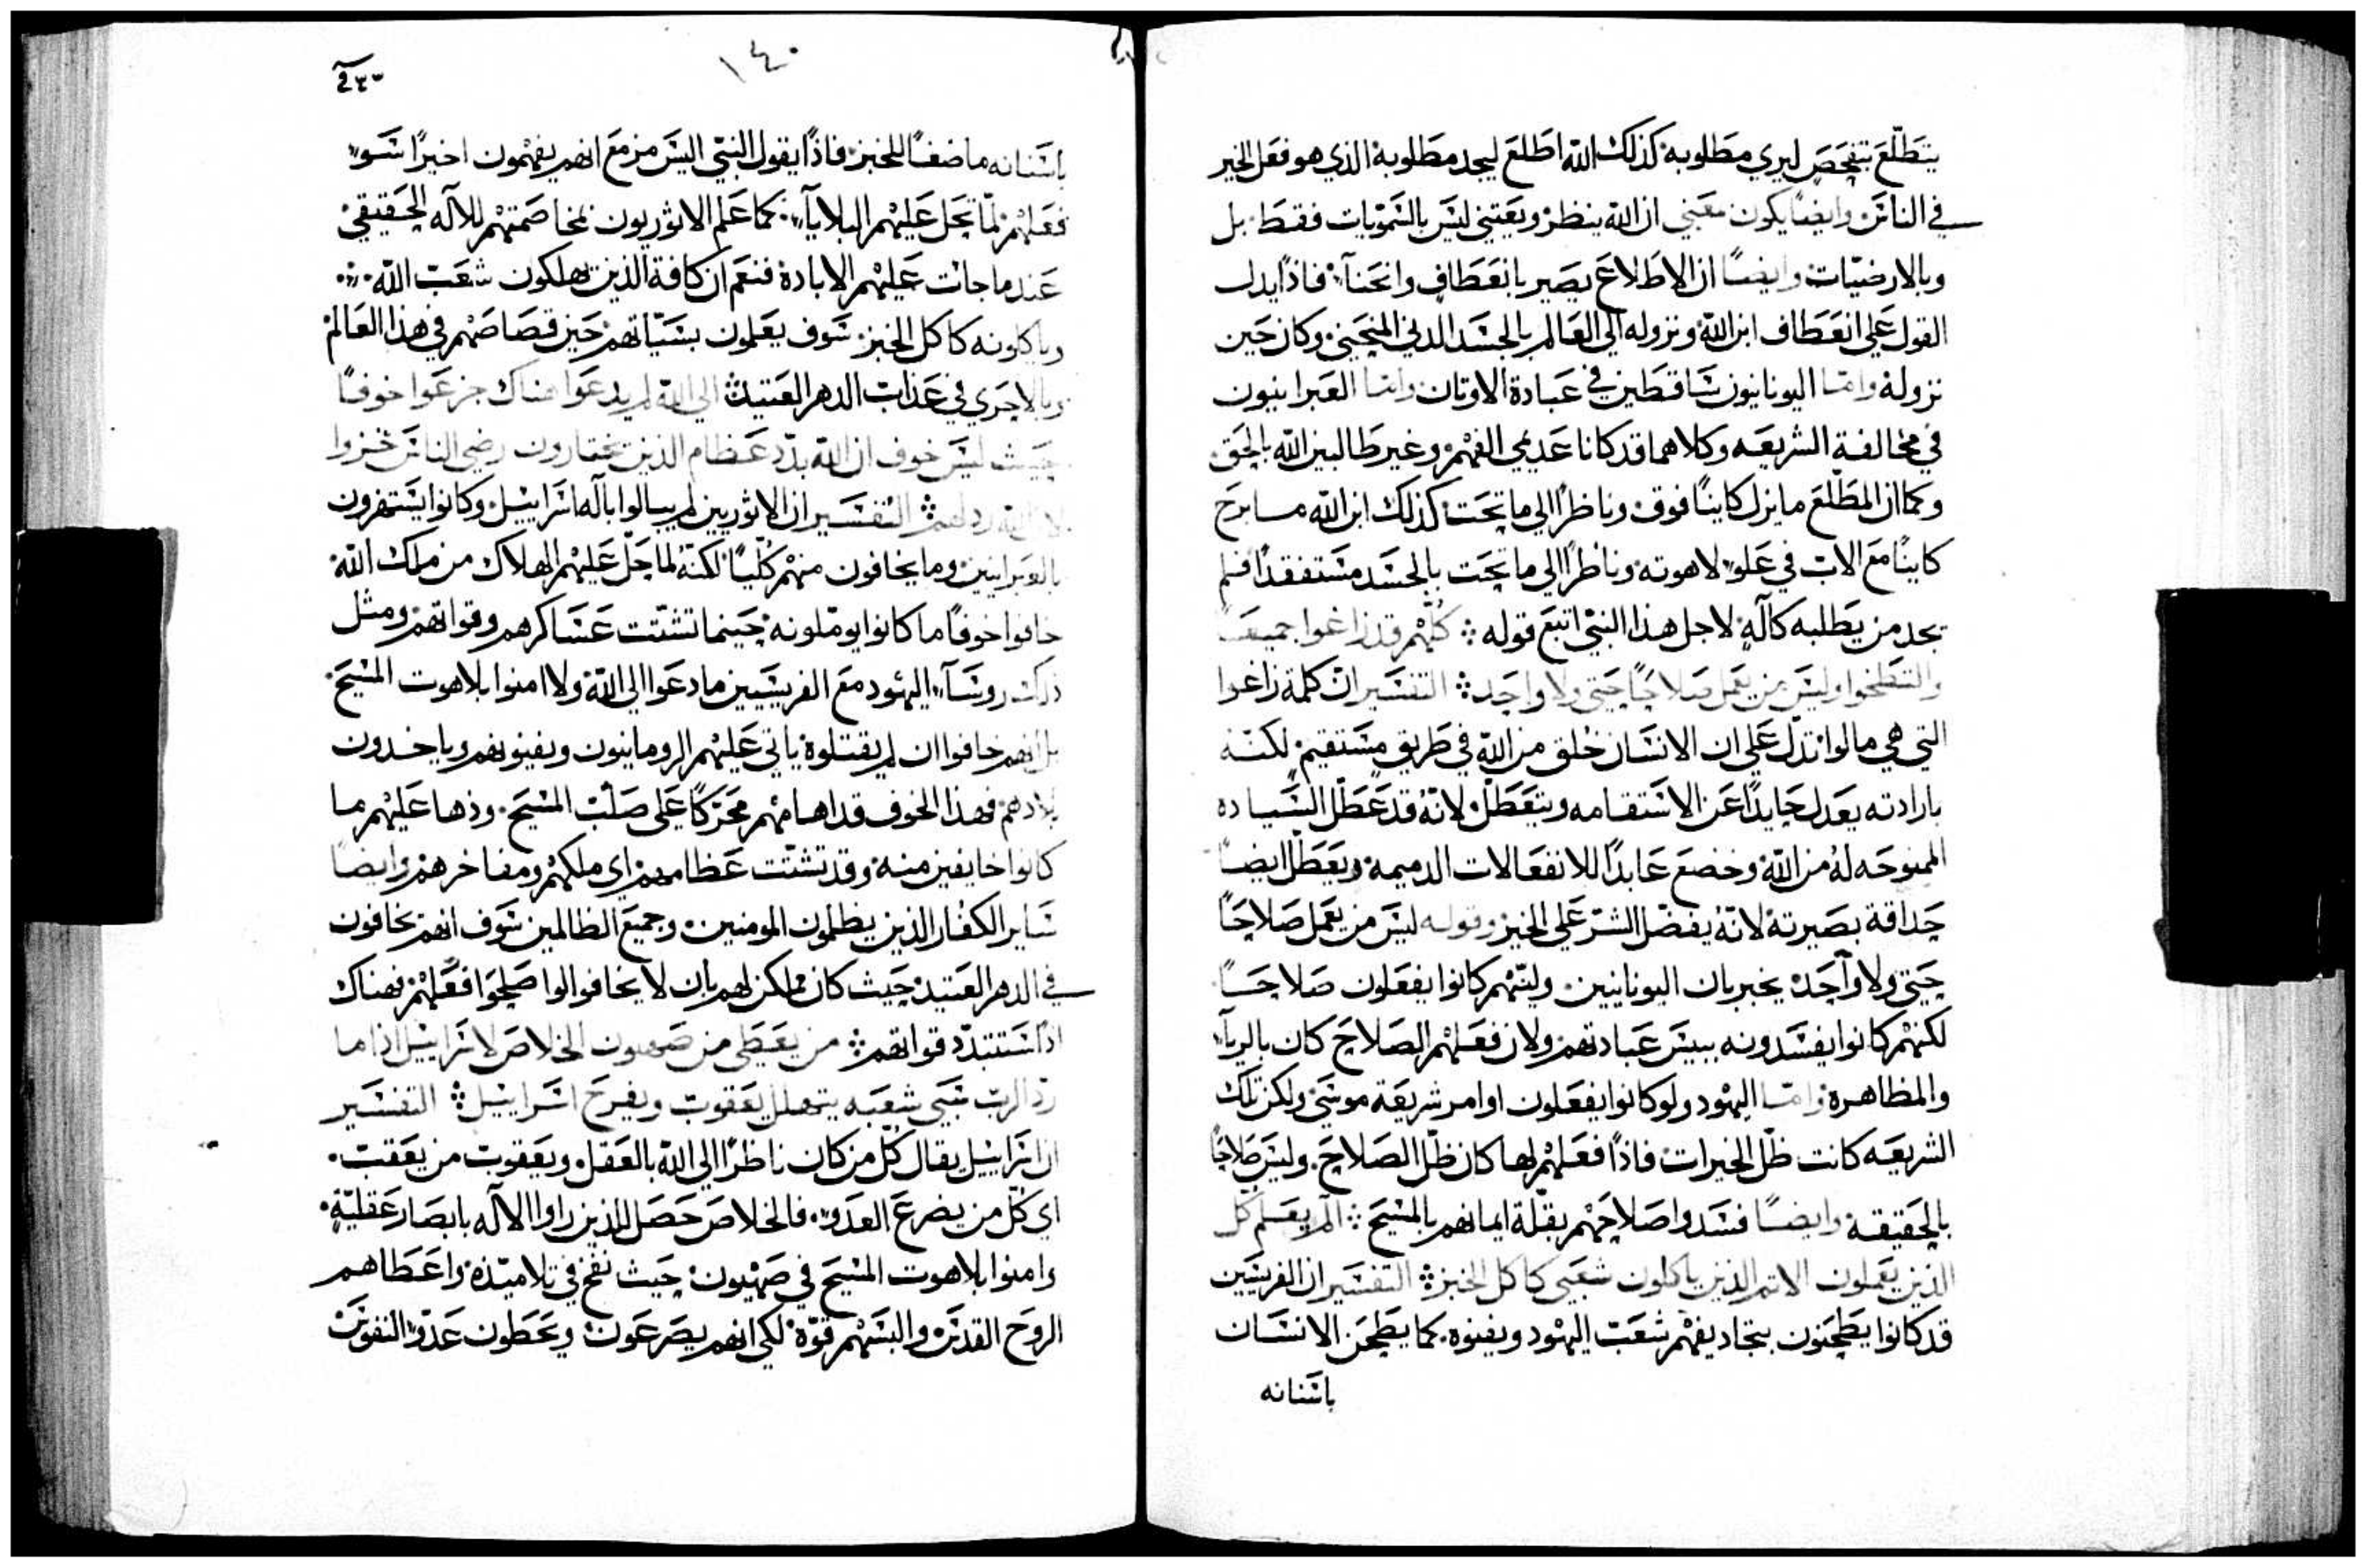 يتطلّع يتفحص ليري مطلوبه كذلك الله اطلع ليجد مطلوبه الذي هو فعل الخير
في الناس وايضًا يكون معني ان الله ينظر ويعتني ليس بالسمويات فقط بل
وبالارضيّات وايضًا ان الاطلاع يصير بانعطافٍ وانحنآء فاذًا يدل
القول علي انعطاف ابن الله ونزوله الي العالم بالجسد الدني المنحني وكان حين
نزوله وامّا اليونانيون ساقطين في عبادة الاوتان وامّا العبرانيون
في مخالفة الشريعه وكلاهما قد كانا عديمي الفهم وغير طالبين الله بالحق
وكما ان المطّلع مايزل كاينًا فوق وناظرًا الي ما تحت كذلك ابن الله ما برح
كاينًا مع الاب في علو لاهوته وناظرًا الي ما تحت بالجسد مستفقدًا فلم
يجد من يطلبه كآلهٍ لاجل هذا النبي اتبع قوله كلّهم قد زاغوا جميعًا
والتطخوا وليس من يعمل صلاحًا حتي ولا واحد التفسير ان كلمة زاغوا
التي هي مالوا تدلّ علي ان الانسان خُلق من الله في طريق مستقيم لكنّه
بارادته يعدل حايدًا عن الاستقامه ويتعطّل لانّه قد عطّل السّياده
الممنوحه لهُ من الله وخضع عابدًا للانفعالات الدميمه ويعطّل ايضًا
حداقة بصيرته لانّهُ يفضّل الشرّ علي الخير وقوله ليس من يعمل صلاحًا
حتي ولا وآحد يخبر بان اليونانيين وليّهم كانوا يفعلون صلاحًا
لكنهم كانوا يفسدونه ببيس عبادتهم ولان فعلهم الصلاح كان بالريآء
والمظاهره وامّا اليهود ولو كانوا يفعلون اوامر شريعة موسي ولكن تلك
الشريعه كانت ظلّ الخيرات فاذًا فعلهم لها كان ظلّ الصلاح وليس صلاحًا
بالحقيقه وايضًا فسدوا صلاحهم بقلّة ايمانهم بالمسيح الم يعلم كل
الذين يعملون الاتم الذين ياكلون شعبي كاكل الخبز التفسير ان الفريسيين
قد كانوا يطحنون بتجاديفهم شعب اليهود ويفنوه كما يطحن الانسان
باسنانه
١٤٠
باسنانه ماضغًا للخبز فاذًا يقول النبي اليس مزمع انهم يفهمون اخيرًا سوء
فعلهم لمّا تحل عليهم البلايآء كما علم الاثوريون بمخاصمتهم للاله الحقيقي
عند ما جات عليهم الابادة فنعم ان كافة الذين يهلكون شعب الله
وياكلونه كاكل الخبز سوف يعلمون بسيّاتهم حين قصاصهم في هذا العالم
وبالاحري في عذاب الدهر العتيد الي الله لم يدعوا هناك جزعوا خوفًا
حيث ليس خوف ان الله بدّد عظام الذين يختارون رضي الناس خزوا
لان الله ردلهم التفسير ان الاثوريين لم يبالوا باله اسراييل وكانوا يستهزون
بالعبرانيين وما يخافون منهم كلّيًا لكنّهُ لما حلّ عليهم الهلاك من ملاك الله
خافوا خوفًا ما كانوا يوملونه حينما تشتّت عساكرهم وقواتهم ومثل
ذلك روسآء اليهود مع الفريسيين ما دعوا الي الله ولا امنوا بلاهوت المسيح
بل انهم خافوا ان لم يقتلوه ياتي عليهم الرومانيون ويفنوهم وياخدون
بلادهم فهذا الخوف قد اهامهم محرّكًا علي صلب المسيح وذها عليهم ما
كانوا خايفين منه وقد تشتّت عظامهم اي ملكهم ومفاخرهم وايضًا
ساير الكفّار الذين يظلمون المومنين وجميع الظالمين سوف انهم يخافون
في الدهر العتيد حيث كان ممكن لهم بان لا يخافوا لوا صلحوا فعلهم فهناك
اذًا ستتبدّد قواتهم من يعطي من صهيون الخلاص لاسراييل اذا ما
ردّ الرب سبي شعبه يتهلل يعقوب ويفرح اسراييل التفسير
ان اسراييل يقال كل من كان ناظرًا الي الله بالعقل ويعقوب من يعقب
اي كل من يضرع العدو فالخلاص حصل للذين راوا الاله بابصار عقليّةٍ
وامنوا بلاهوت المسيح في صهيون حيث نفخ في تلاميذه واعطاهم
الروح القدس والبسهم قوّة لكي انهم يصرعون ويحطون عدوّ النفوس